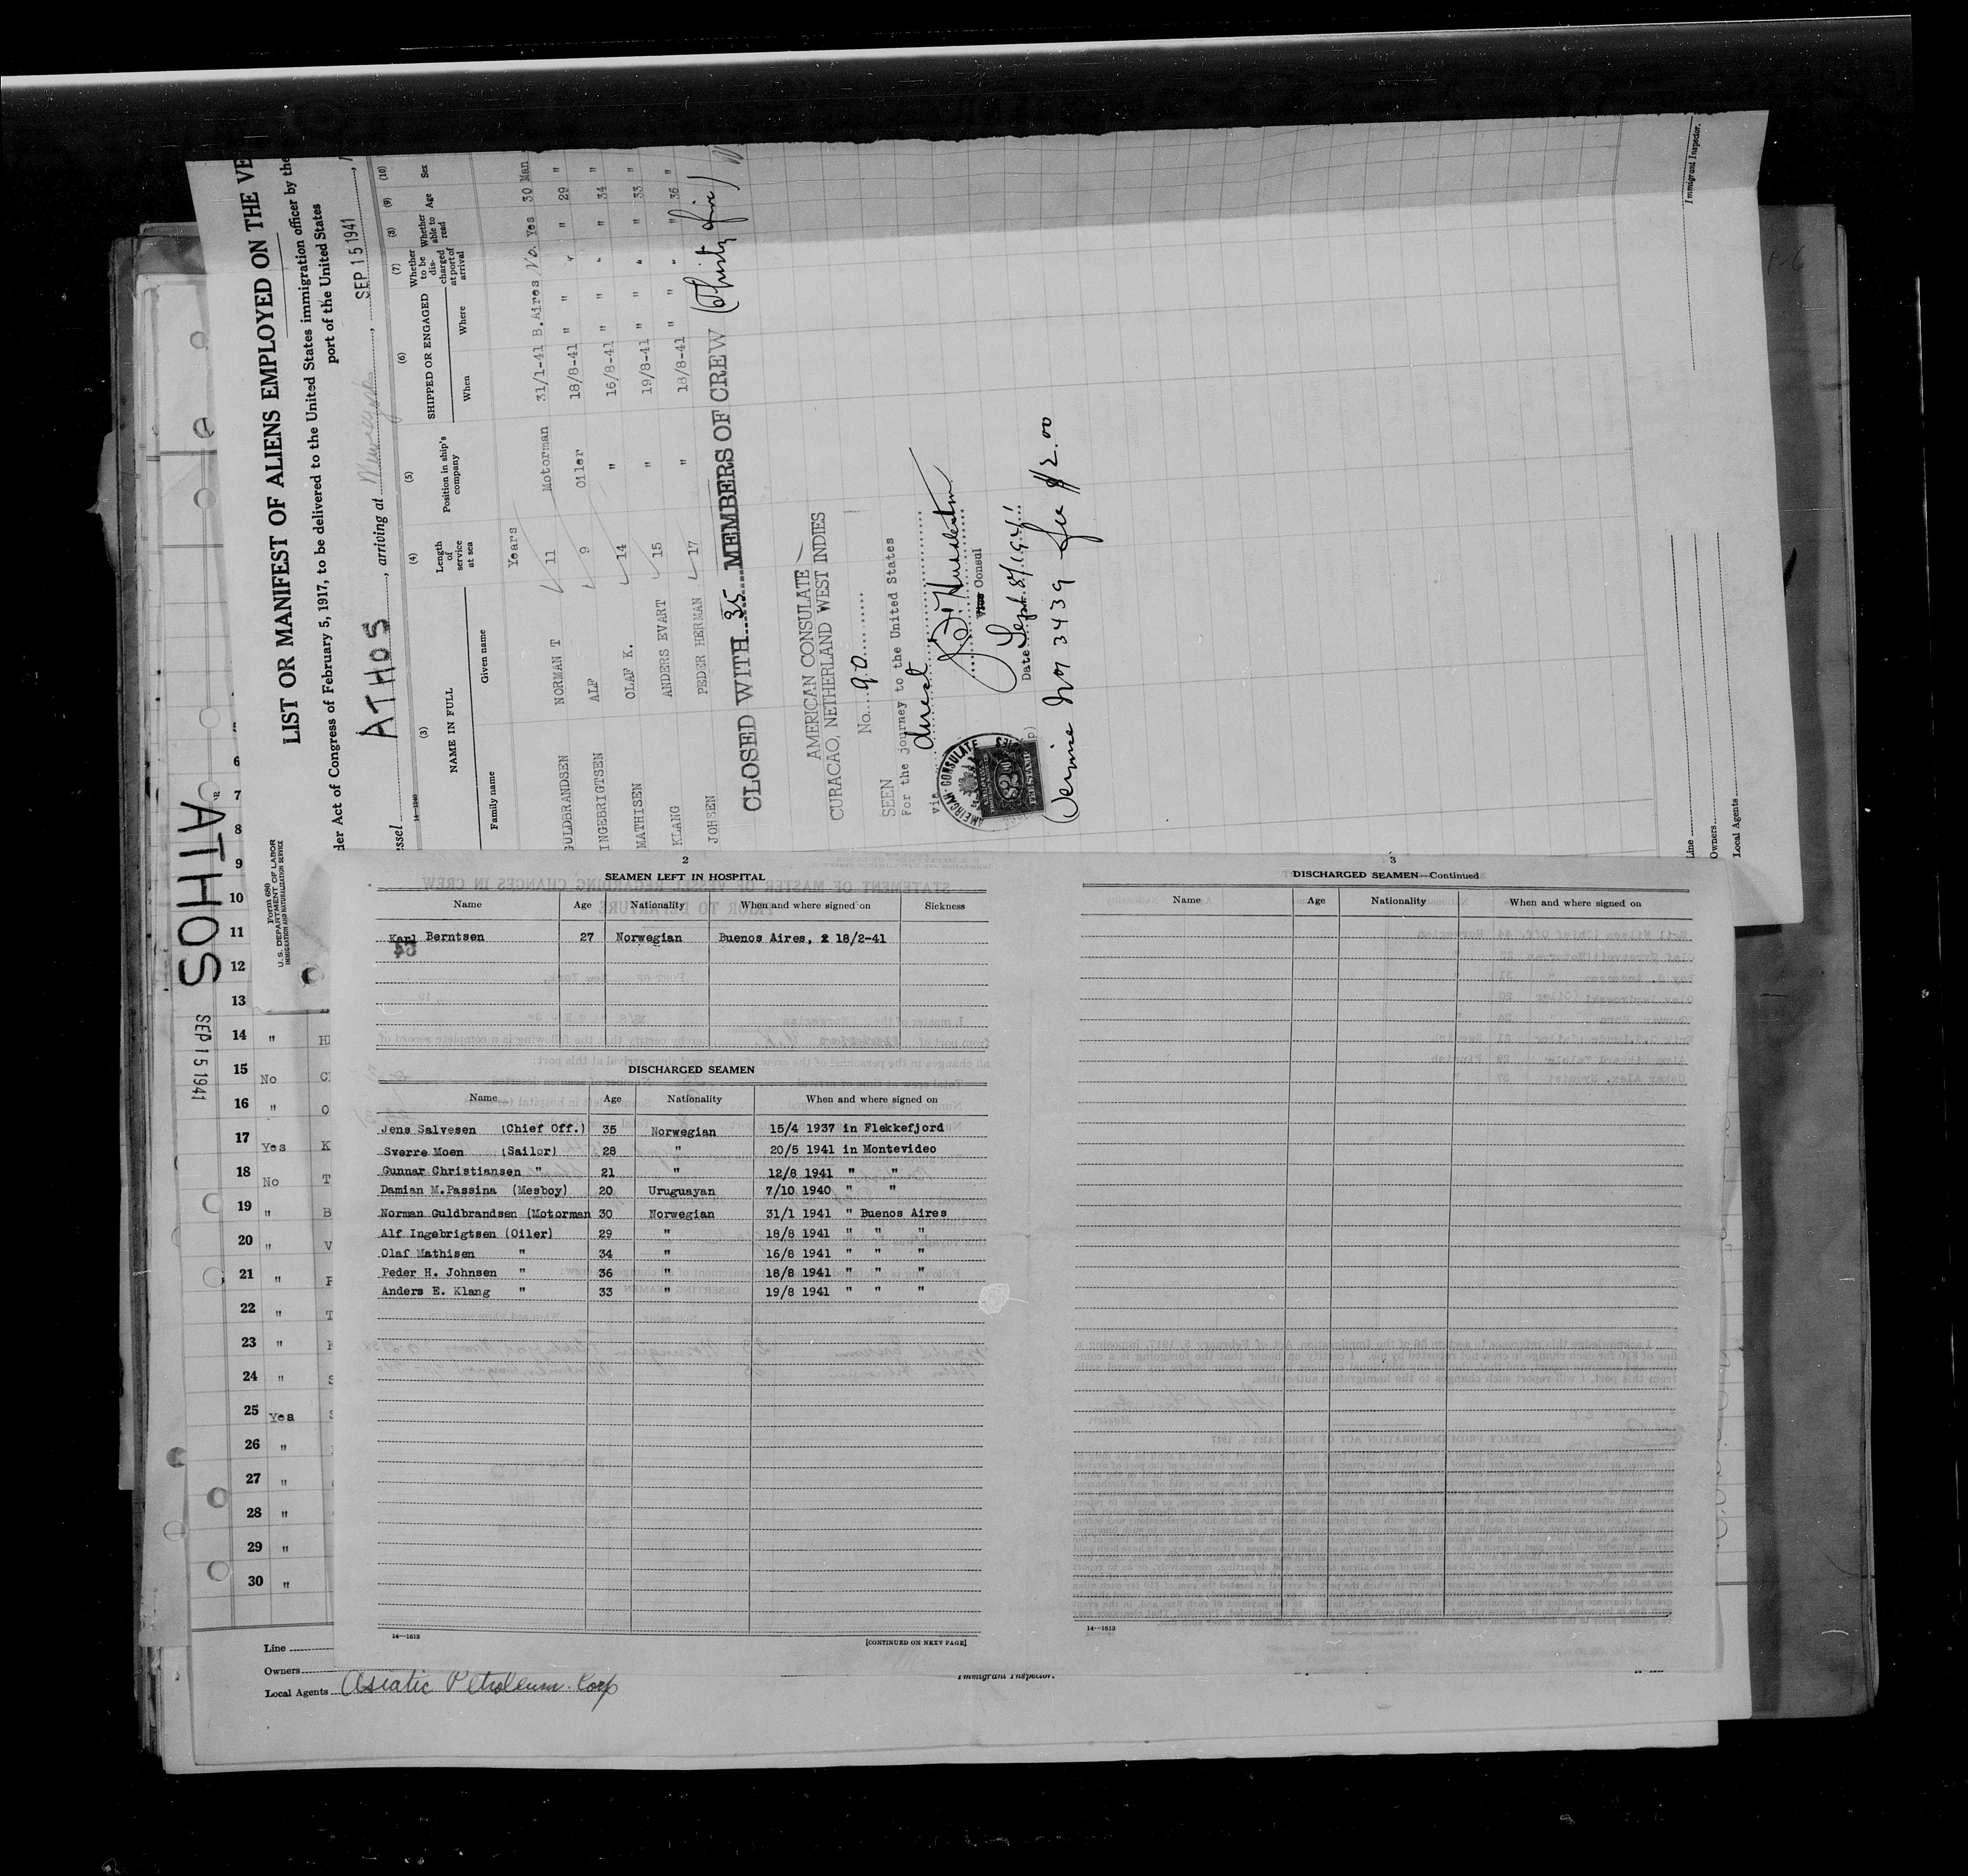 LIST OR MANIFEST OF ALIENS EMPLOYED ON THE VE
der Act of Congress of February 5, 1917, to be delivered to the United States immigration officer by the
port of the United States
ssel ATHOS, arriving at New York, SEP 15 1941
14-1240
(3) (4) (5) (6) (7) (8) (9) (10)
NAME IN FULL
Family name Given name
Length of service at sea
Position in ship's company
SHIPPED OR ENGAGED
When Where
Whether to be discharged at port of arrival
Whether able to read
Age
Sex
Years
GULDBRANDSEN NORMAN T 11 Motorman 31/1-41 B.Aires No. Yes 30 Man
INGEBRIGTSEN ALF 9 Oiler 18/8-41 " " " " 29 "
MATHISEN OLAF K. 14 " 16/8-41 " " " " 34 "
KLANG ANDERS EVART 15 " 19/8-41 " " " " 33 "
JOHSEN PEDER HERMAN 17 " 18/8-41 " " " " 36 "
CLOSED WITH 35 MEMBERS OF CREW (Thirty five)
AMERICAN CONSULATE
CURACAO, NETHERLAND WEST INDIES
No. 90
SEEN
For the journey to the United States
via direct
Vice Consul
Date Sept. 8/1941
AMERICAN CONSULATE
$2.00
FEE STAMP
Service No 3439 fee $2.00
Immigrant Inspector.
Line
Owners
Local Agents
ATHOS
SEP 15 1941
Form 680
U. S. DEPARTMENT OF LABOR
IMMIGRATION AND NATURALIZATION SERVICE
6
7
8
9
10
11
12
13
14 " H
15 No C
16 " O
17 Yes K
18 No T
19 " B
20 " V
21 "
22 " T
23 "
24 "
25 Yes
26 "
27 "
28 "
29 "
30 "
Line
Owners
Local Agents Asiatic Petroleum Corp
Immigrant Inspector.
2
SEAMEN LEFT IN HOSPITAL
Name Age Nationality When and where signed on Sickness
Karl Berntsen 27 Norwegian Buenos Aires, 18/2-41
DISCHARGED SEAMEN
Name Age Nationality When and where signed on
Jens Salvesen (Chief Off.) 35 Norwegian 15/4 1937 in Flekkefjord
Sverre Moen (Sailor) 28 " 20/5 1941 in Montevideo
Gunnar Christiansen " 21 " 12/8 1941 " "
Damian M.Passina (Mesboy) 20 Uruguayan 7/10 1940 " "
Norman Guldbrandsen (Motorman 30 Norwegian 31/1 1941 " Buenos Aires
Alf Ingebrigtsen (Oiler) 29 " 18/8 1941 " " "
Olaf Mathisen " 34 " 16/8 1941 " " "
Peder H. Johnsen " 36 " 18/8 1941 " " "
Anders E. Klang " 33 " 19/8 1941 " " "
14—1613
[CONTINUED ON NEXT PAGE]
3
DISCHARGED SEAMEN—Continued
Name Age Nationality When and where signed on
14—1613